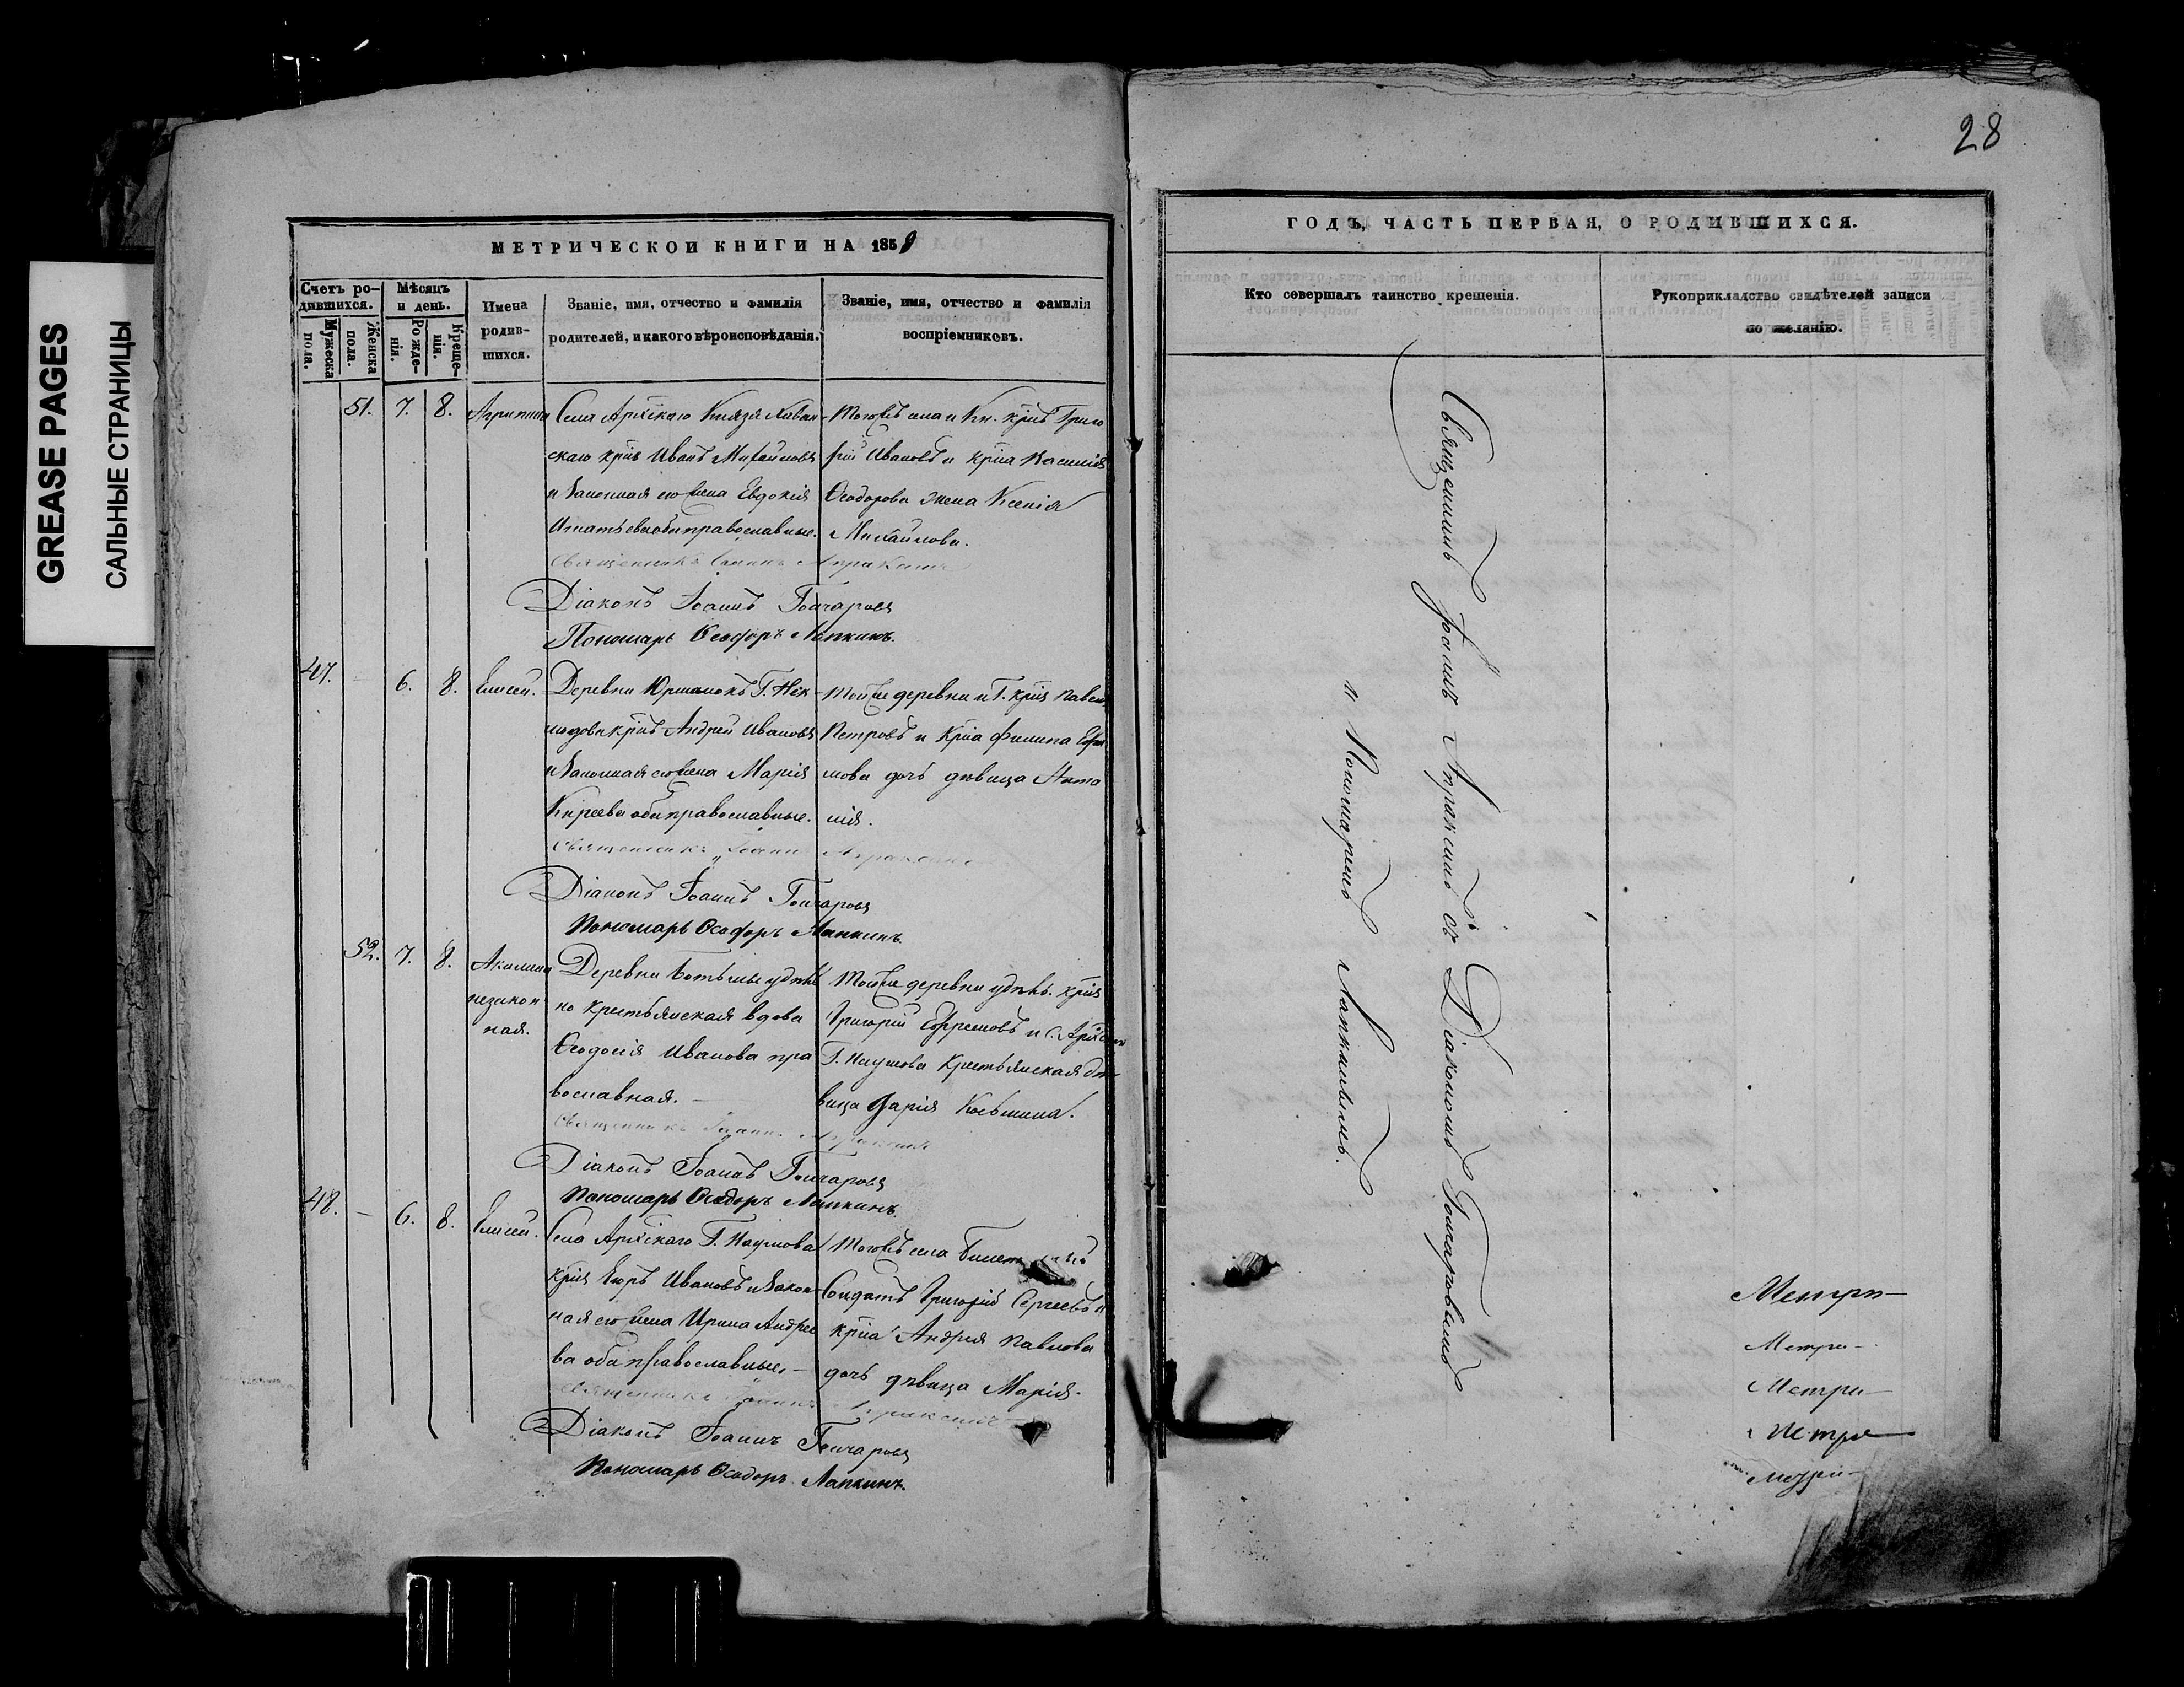 GREASE PAGES
САЛЬНЫЕ СТРАНИЦЫ
28
МЕТРИЧЕСКОЙ КНИГИ НА 1859
Счетъ родившихся.
Мужеска пола.
Женска пола.
Мѣсяцъ и день.
Рожденія.
Крещенія.
Имена родившихся.
Званіе, имя, отчество и фамилія
родителей, и какого вѣроисповѣданія.
Званіе, имя, отчество и фамилія
воспріемниковъ.
51. 7. 8.
Агрипина
Села Князя
Иванъ Михайловъ
и законная его жена Евдокія
Игнатьева оба православные.
Тогожъ села и Кн. Григо
рій Ивановъ и Василія
Ѳеодорова жена Ксенія
Михайлова.
Священникъ Іоаннъ Апраксинъ
Діаконъ Іоаннъ Гончаровъ
Пономарь Ѳеодоръ Лапкинъ.
47. – 6. 8.
Елисей.
Деревни Г.
Андрей Ивановъ
и законная его жена Марія
Киреева оба православные.
Тойже деревни и Г. Павелъ
Петровъ и Филипа Ефи
мова дочь дѣвица
нія.
Священникъ Іоаннъ Апраксинъ
Діаконъ Іоаннъ Гончаровъ
Пономарь Ѳеодоръ Лапкинъ.
52. 7. 8.
Акилина
незакон
ная.
Деревни удѣль
но крестьянская вдова
Ѳеодосія Иванова пра
вославная. –
Тойже деревни удѣль.
Григорій Ефремовъ и с.
Г. Наумова крестьянская дѣ
вица Дарія Косьмина.
Священникъ Іоаннъ Апраксинъ
Діаконъ Іоаннъ Гончаровъ
Пономарь Ѳеодоръ Лапкинъ.
48. – 6. 8.
Елисей.
Села Г. Наумова
Егоръ Ивановъ и закон
ная его жена Ирина Андрее
ва оба православные. –
Тогожъ села
Солдатъ Григорій Сергеевъ и
Андрея Павлова
дочь дѣвица Марія.
Священникъ Іоаннъ Апраксинъ
Діаконъ Іоаннъ Гончаровъ
Пономарь Ѳеодоръ Лапкинъ.
ГОДЪ, ЧАСТЬ ПЕРВАЯ, О РОДИВШИХСЯ.
Кто совершалъ таинство крещенія.
Рукоприкладство свидѣтелей записи
по желанію.
Священникъ Іоаннъ Апраксинъ съ Діакономъ Гончаровымъ
и Пономаремъ Лапкинымъ.
Метри–
Метри–
Метри–
Метри
Метри–